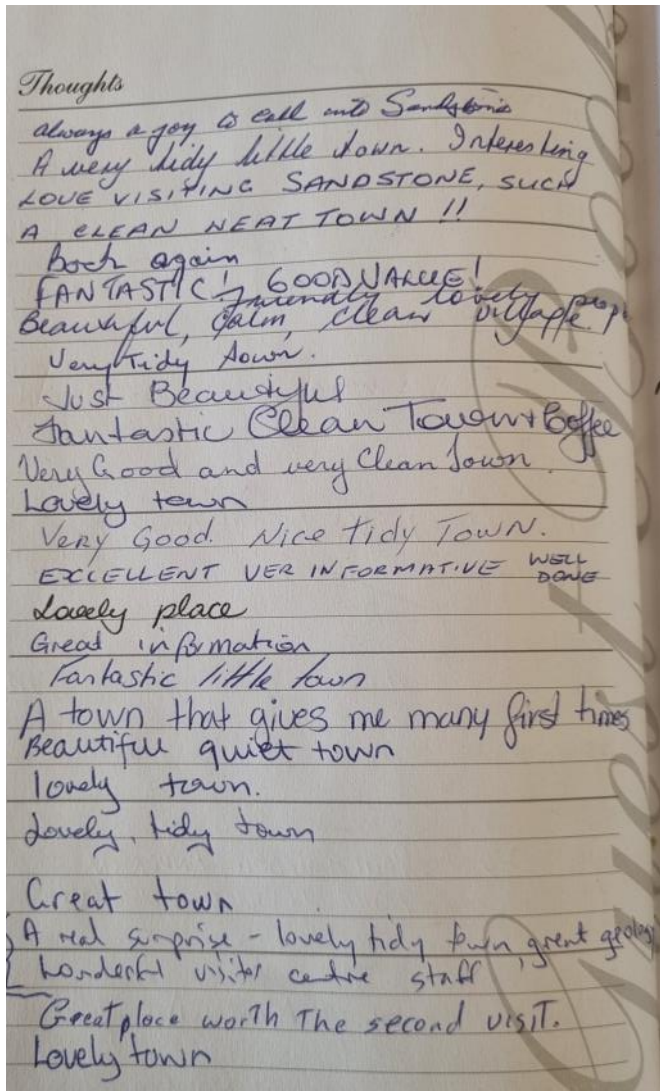 Thoughts
always a joy to call into Sandstone
A very tidy little town. Interesting
LOVE VISITING SANDSTONE, SUCH
A CLEAN NEAT TOWN !!
Back again
FANTASTIC! GOOD VALUE!
Friendly lovely people
Beautiful, calm, clean village.
Very Tidy Town.
Just Beautiful
Fantastic Clean Town + Coffee
Very Good and very Clean Town.
Lovely town
Very Good. Nice tidy Town.
EXCELLENT VER INFORMATIVE WELL DONE
Lovely place
Great information
Fantastic little town
A town that gives me many first times
Beautiful quiet town
lovely town.
Lovely, tidy town
Great town
A real surprise - lovely tidy town, great geology
Wonderful visitor centre staff
Great place worth The second visit.
Lovely town
Guest Book